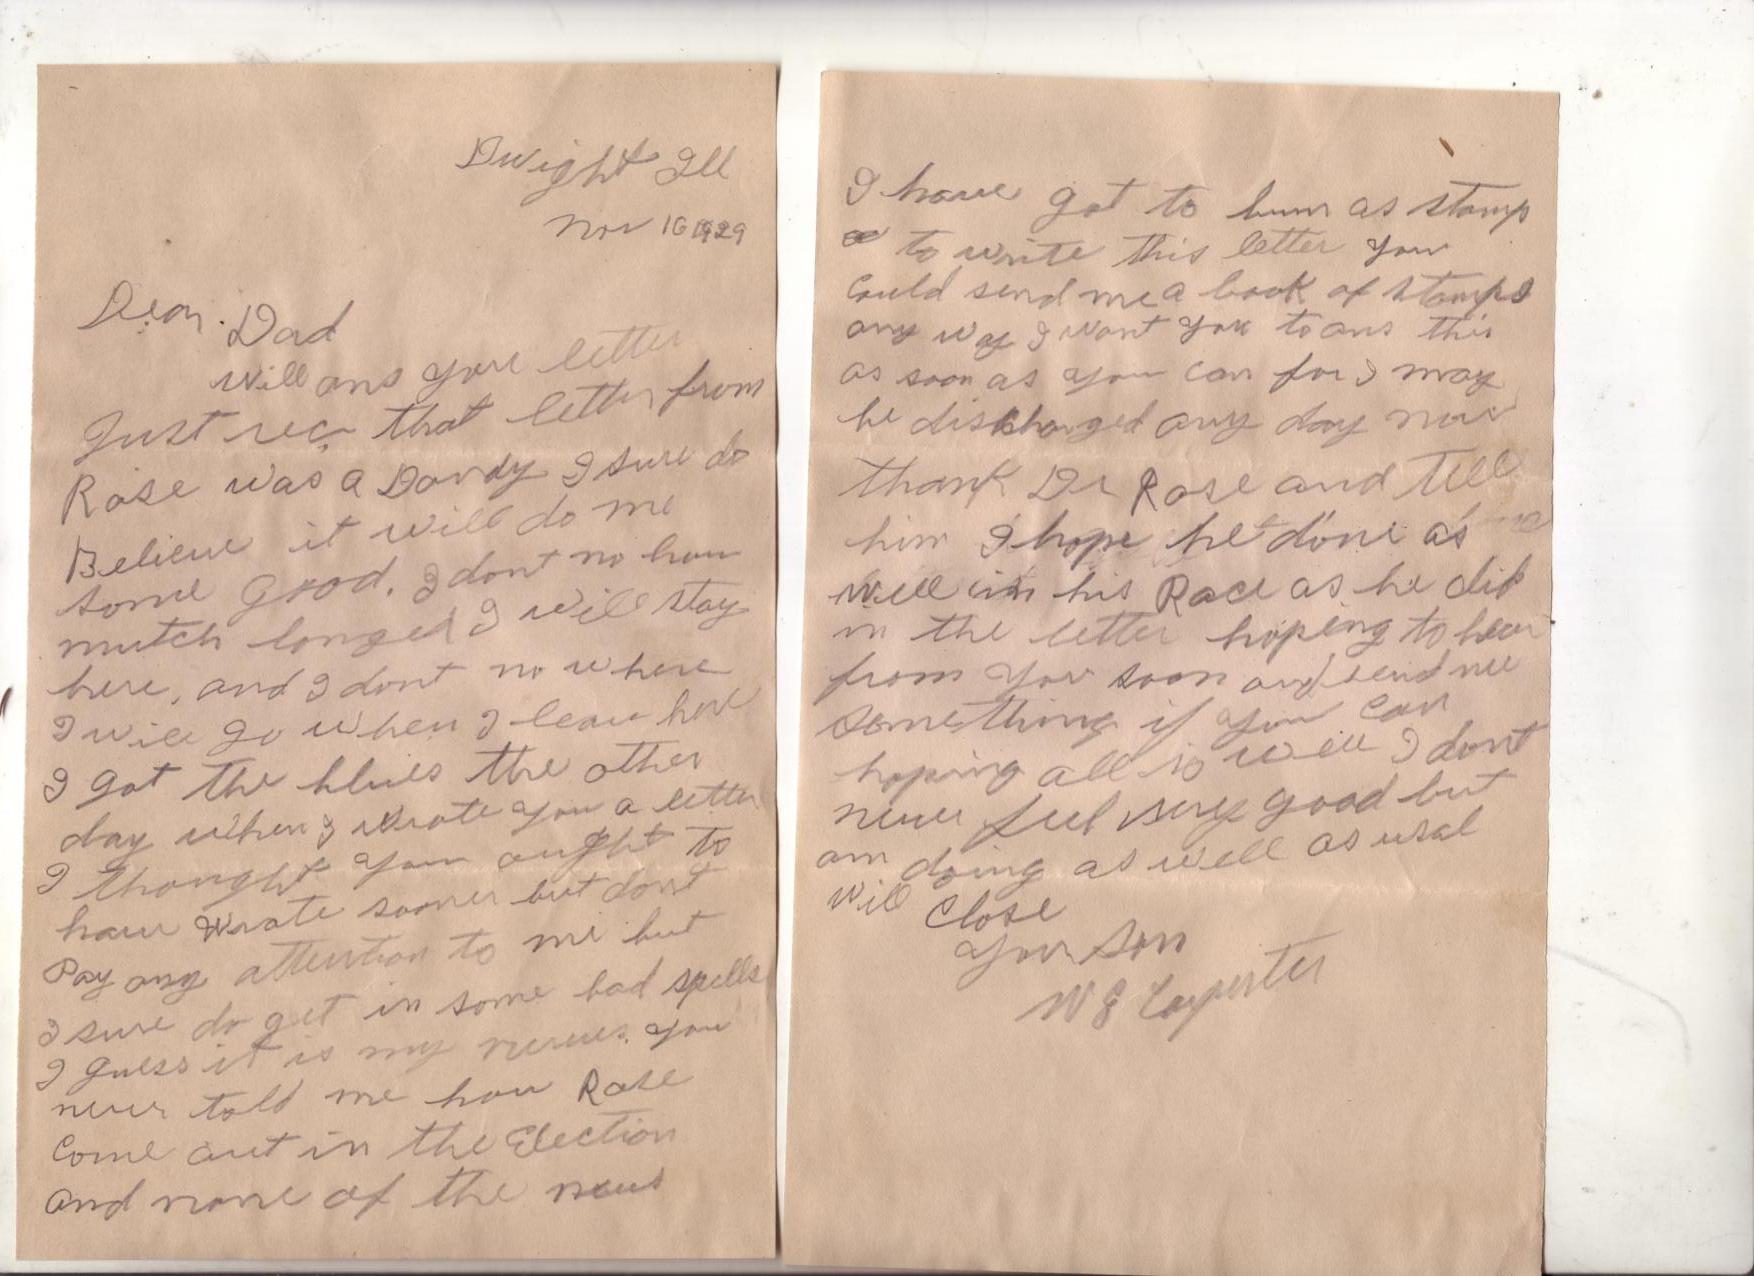 Dwight Ill
Nov 16 1929
Dear Dad
Will ans your letter
Just rec that letter from
Rose was a Dandy I sure do
Believe it will do me
some good. I dont no how
mutch longer I will stay
here, and I dont no where
I will go when I leave here
I got the blues the other
day when I wrote you a letter
I thought you ought to
have wrote sooner but dont
Pay any attention to me but
I sure do get in some bad spells
I guess it is my nerves. you
never told me how Rose
Come out in the Election
and none of the news
I have got to bum as stamp
to write this letter you
Could send me a book of stamps
any way I want you to ans this
as soon as you can for I may
be discharged any day now
thank Dr Rose and Tell
him I hope he done as
well in his Race as he did
in the letter hoping to hear
from you soon and send me
something if you can
hoping all is well I dont
never feel very good but
am doing as well as usal
Will Close
Your Son
W E